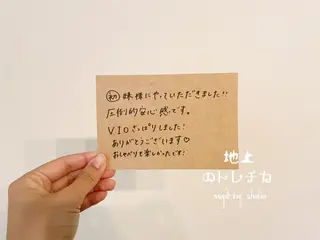 初 妹様にやっていただきました!!
圧倒的安心感です。
VIOさっぱりしました!
ありがとうございます♡
おしゃべりも楽しかったです!
地上
のトレチカ
waxing studio